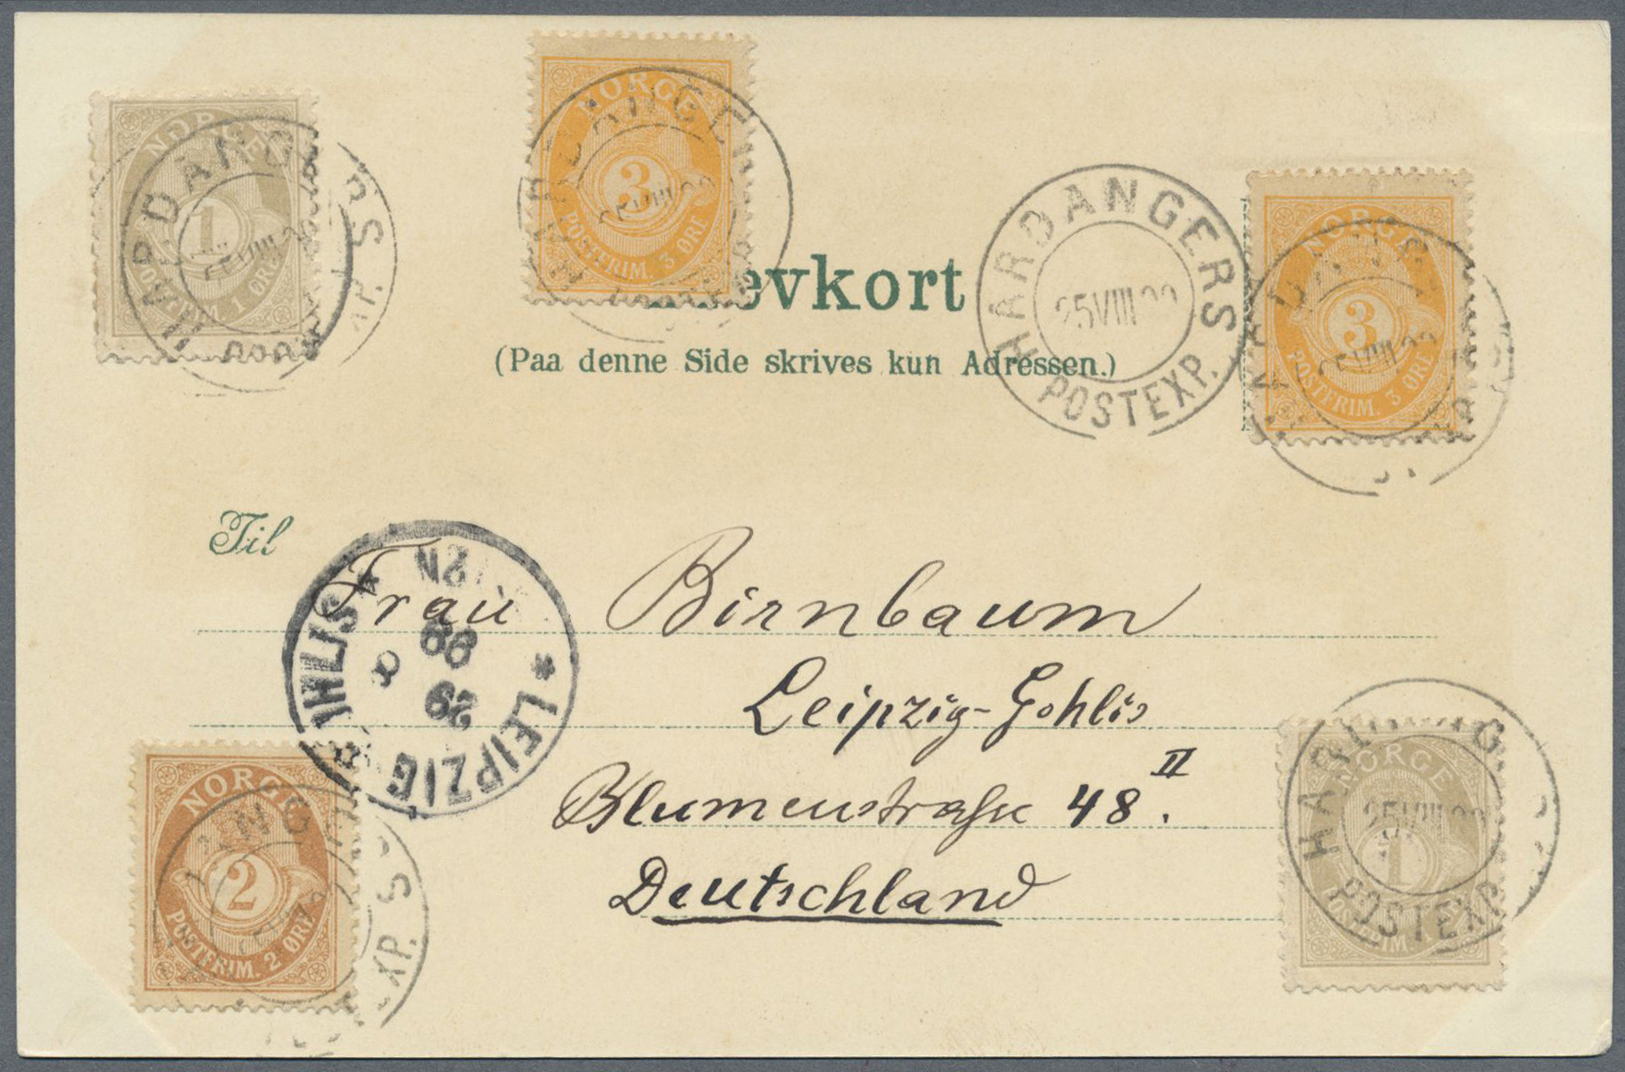 NORGE
1
POSTFRIM. 1 ØRE
NORGE
3
POSTFRIM. 3 ØRE
NORGE
3
POSTFRIM. 3 ØRE
HARDANGERS
25 VIII 99
POSTEXP.
evkort
(Paa denne Side skrives kun Adressen.)
Til
Frau Birnbaum
Leipzig-Gohlis
Blumenstraße 48 II.
Deutschland
* LEIPZIG
29 8 99
NORGE
2
POSTFRIM. 2 ØRE
NORGE
1
HARDANG
25 VIII
POSTEXP